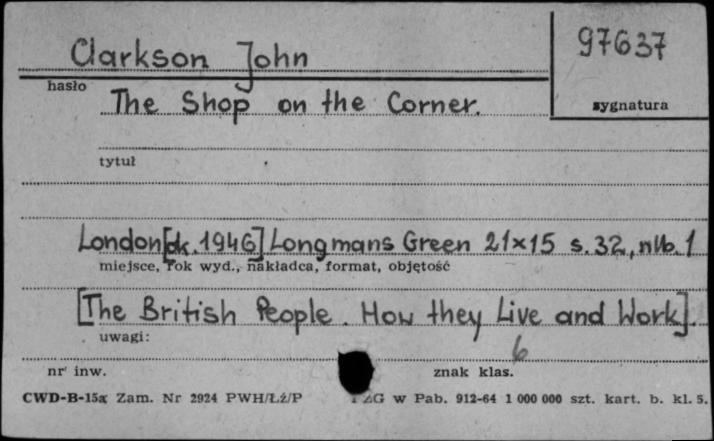 Clarkson John
97637
hasło
sygnatura
The Shop on the Corner.
tytuł
London [ok. 1946] Longmans Green 21×15 s. 32, nlb. 1
miejsce, rok wyd., nakładca, format, objętość
[The British People. How they Live and Work].
uwagi:
6
nr inw.
znak klas.
CWD-B-15a Zam. Nr 2924 PWH/Łż/P
w Pab. 912-64 1 000 000 szt. kart. b. kl. 5.